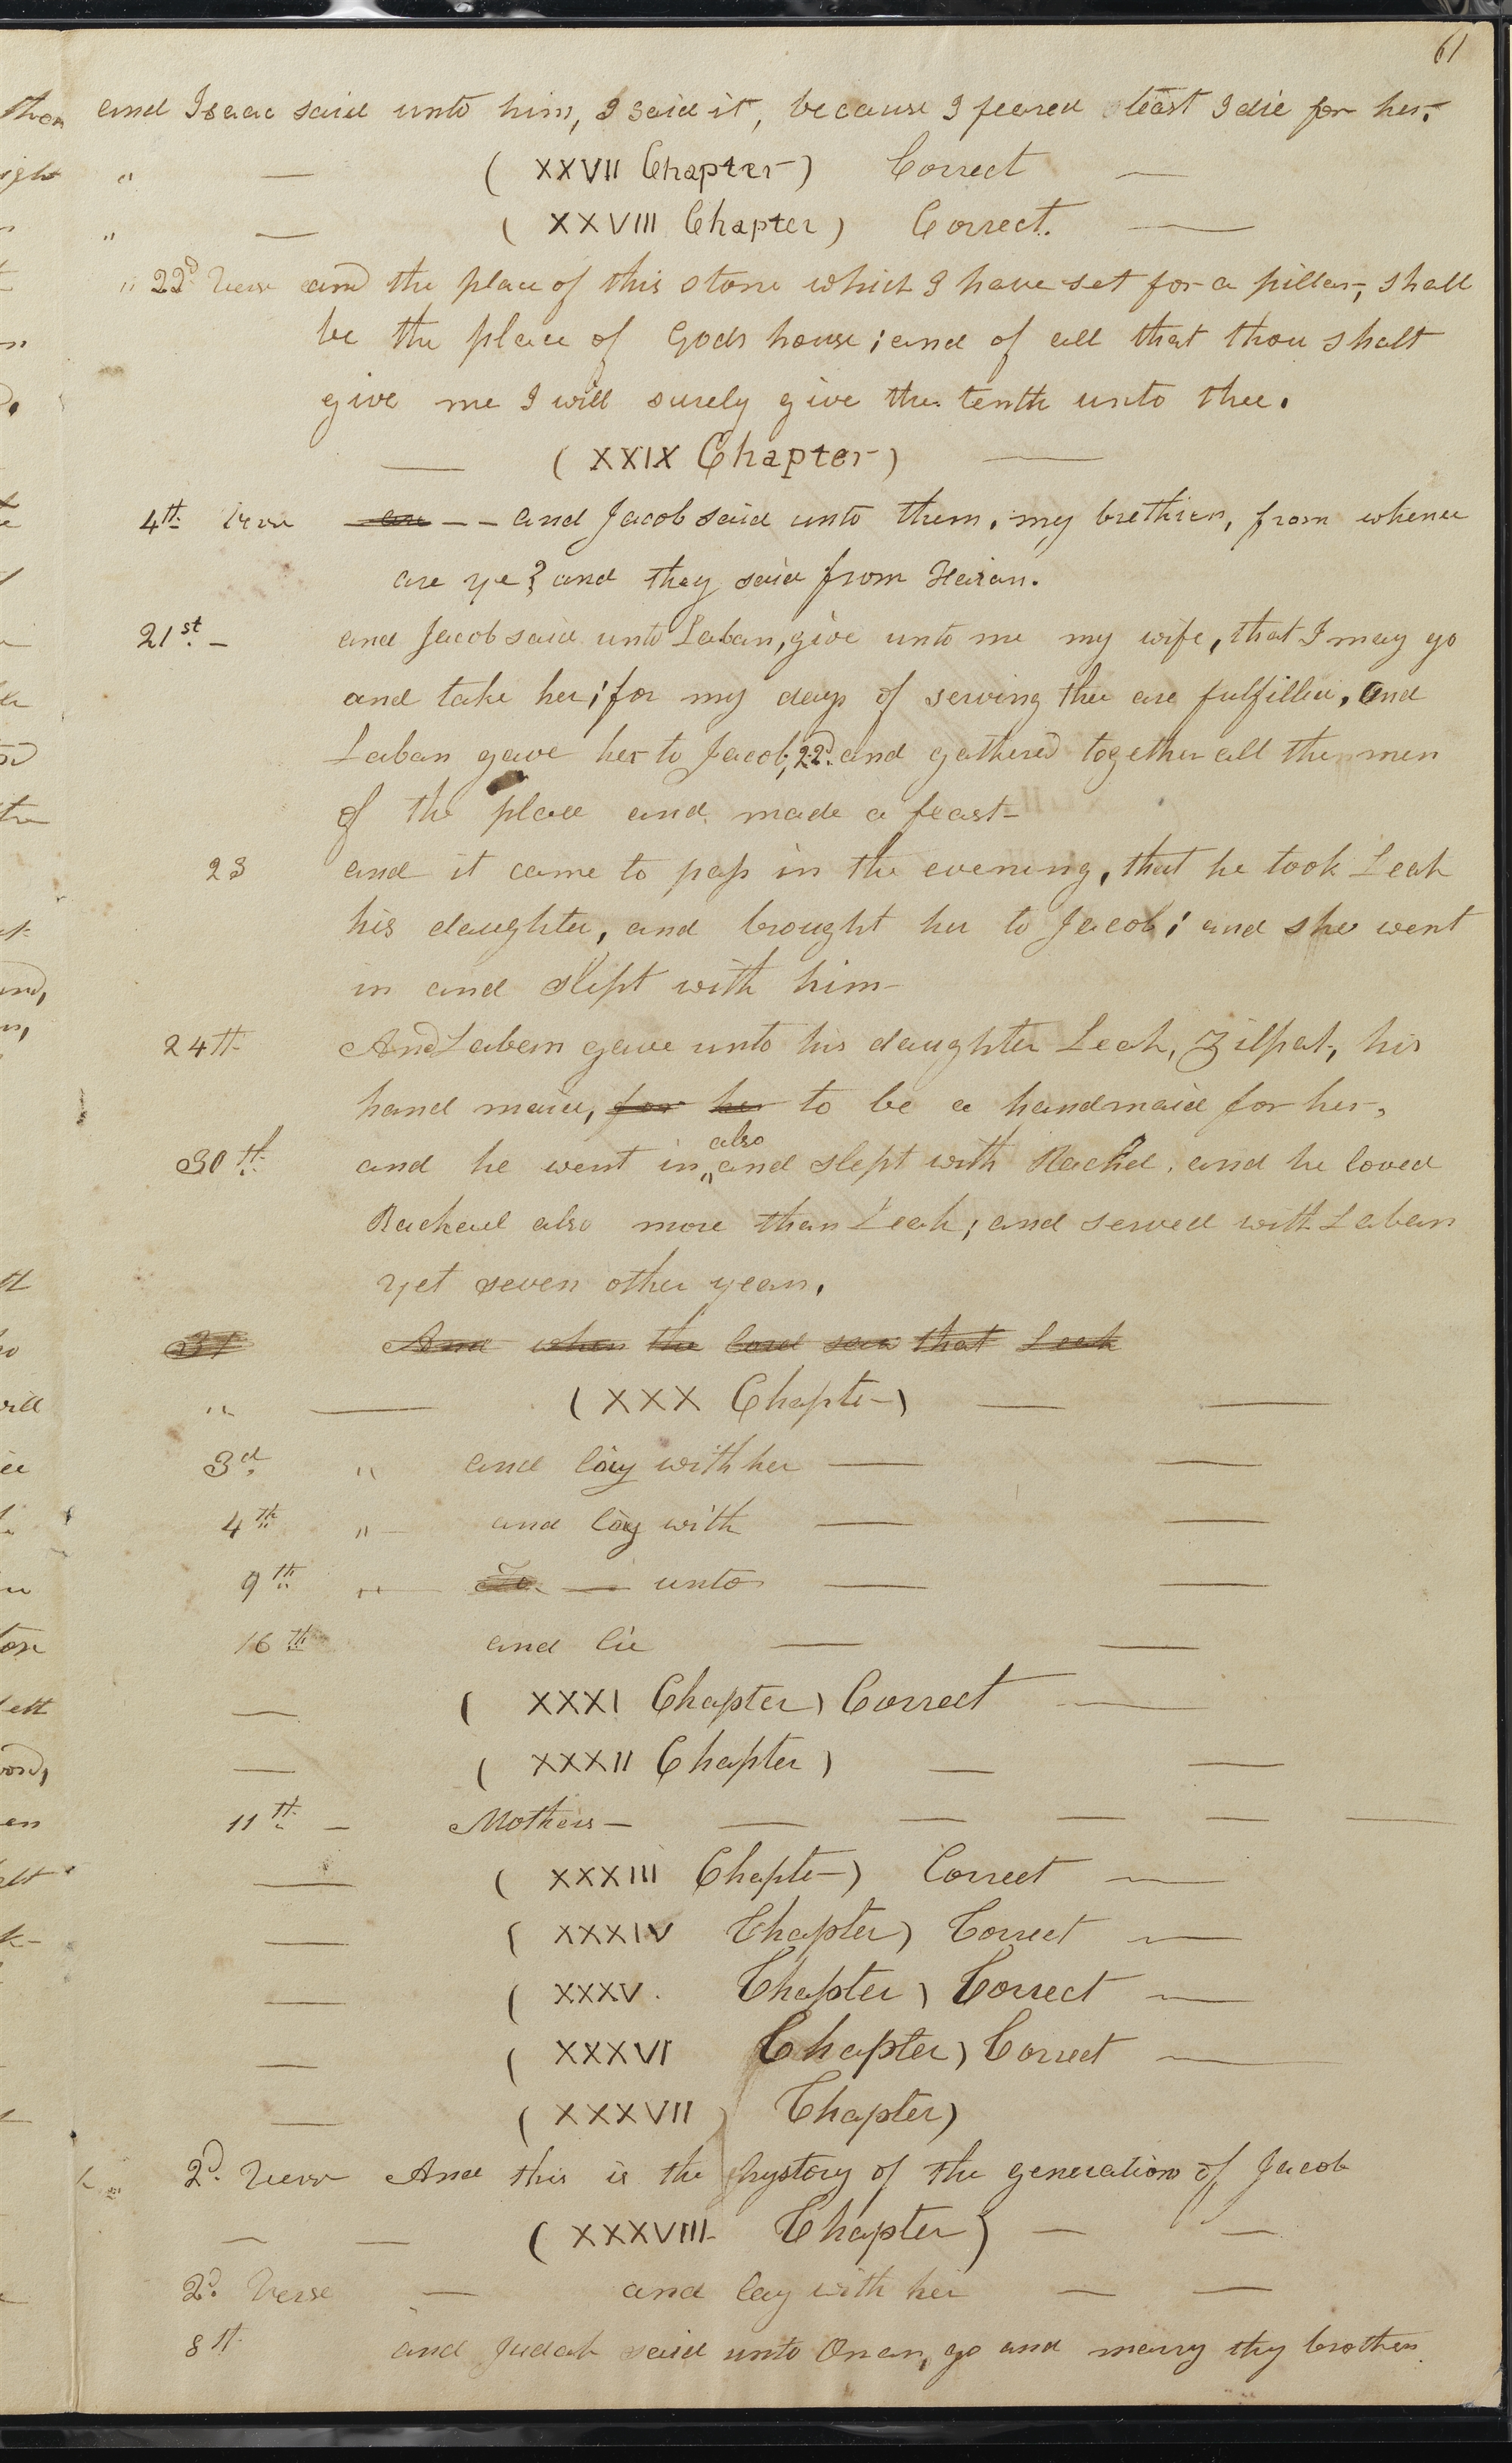 61
and Isaac said unto him, I said it, because I feared least I die for her.
" — ( XXVII Chapter ) Correct —
" — ( XXVIII Chapter ) Correct. —
" 22d Verse and the place of this stone which I have set for a pillar, shall
be the place of Gods house; and of all that thou shalt
give me I will surely give the tenth unto thee.
— ( XXIX Chapter ) —
4th Verse an — — and Jacob said unto them, my brethren, from whence
are ye? and they said from Haran.
21st — and Jacob said unto Laban, give unto me my wife, that I may go
and take her; for my days of serving thee are fulfilled, and
Laban gave her to Jacob; 22d. and gathered together all the men
of the place and made a feast—
23 and it came to pass in the evening, that he took Leah
his daughter, and brought her to Jacob; and she went
in and slept with him—
24th And Laban gave unto his daughter Leah, Zilpah, his
hand maid, for her to be a handmaid for her,
also
30th and he went in, and slept with Rachel, and he loved
Rachael also more than Leah; and served with Laban
yet seven other years.
31 And when the lord saw that Leah
" — ( XXX Chapter ) — —
3d. " and lay with her — —
4th " — and lay with — —
9th " — To — unto — —
16th and lie — —
— ( XXXI Chapter ) Correct —
— ( XXXII Chapter ) — —
11th — Mothers — — — — — —
— ( XXXIII Chapter ) Correct —
— ( XXXIV Chapter ) Correct —
— ( XXXV. Chapter ) Correct —
— ( XXXVI Chapter ) Correct —
— ( XXXVII ) Chapter )
2d. Verse And this is the hystory of the generation of Jacob
— — ( XXXVIII Chapter ) — —
2d. Verse — and lay with her — —
8th and Judah said unto Onan, go and marry thy brothers